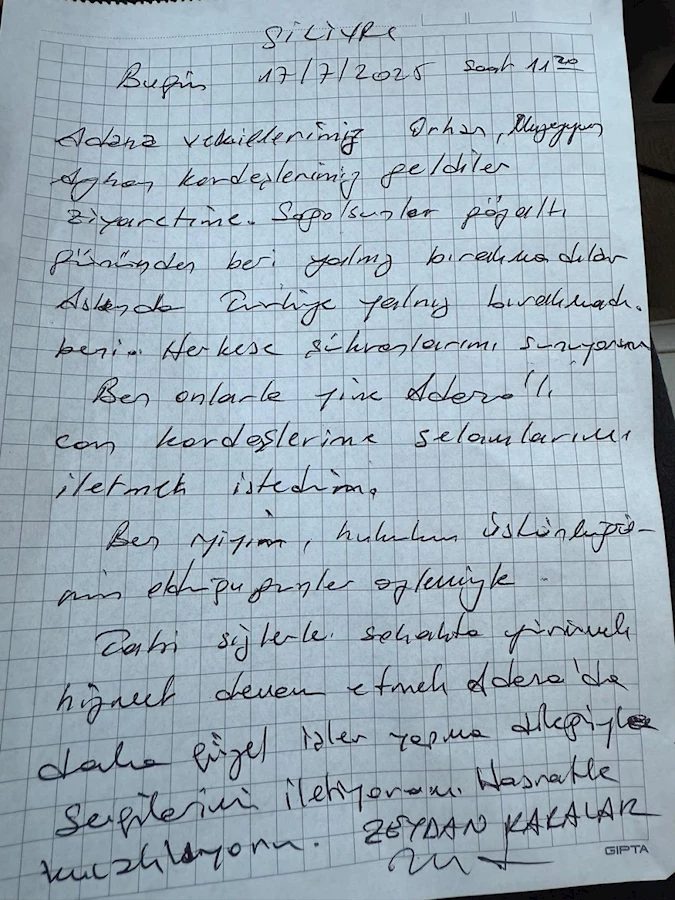 SİLİVRİ
Bugün 17/7/2025 saat 11 20
Adana vekillerimiz Orhan, Müzeyyen
Ayhan kardeşlerimiz geldiler
ziyaretime. Sağolsunlar gözaltı
gününden beri yalnız bırakmadılar
Aslında Türkiye yalnız bırakmadı.
beni.. Herkese şükranlarımı sunuyorum
Ben onlarla yine Adana'lı
can kardeşlerime selamlarımı
iletmek istedim.
Ben iyiyim, hukukun üstünlüğü-
nün olduğu günler özlemiyle.
Tabi sizlerle sokakta yürümek
hizmet devam etmek Adana'da
daha güzel işler yapma dileğiyle
Sevgilerimi iletiyorum. Hasretle
kucaklıyorum. ZEYDAN KARALAR
GIPTA